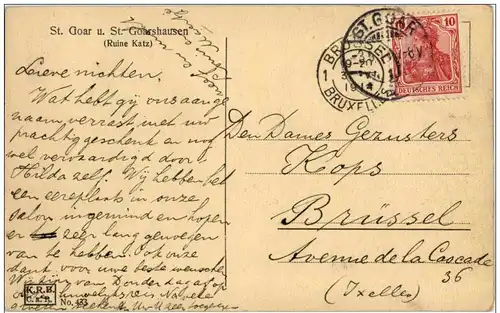 St. Goar u. St. Goarshausen
(Ruine Katz)
Lieve nichten,
Wat hebt gij ons aange
naam verrast met uw
prachtig geschenk en nog
wel vervaardigd door
Hilda zelf. Wij hebben het
een eereplaats in onze
salon ingeruimd en hopen
er zeer lang genoegen
van te hebben. Ook onze
dank voor uwe beste wenschen
Wij zijn van Donderdag af op
K.R.B.
No. 433
ST. GOAR
BRUSSEL
1 1
BRUXELLES
10
DEUTSCHES REICH
Den Dames Gezusters
Kops
Brüssel
Avenue de la Cascade
36
(Ixelles)